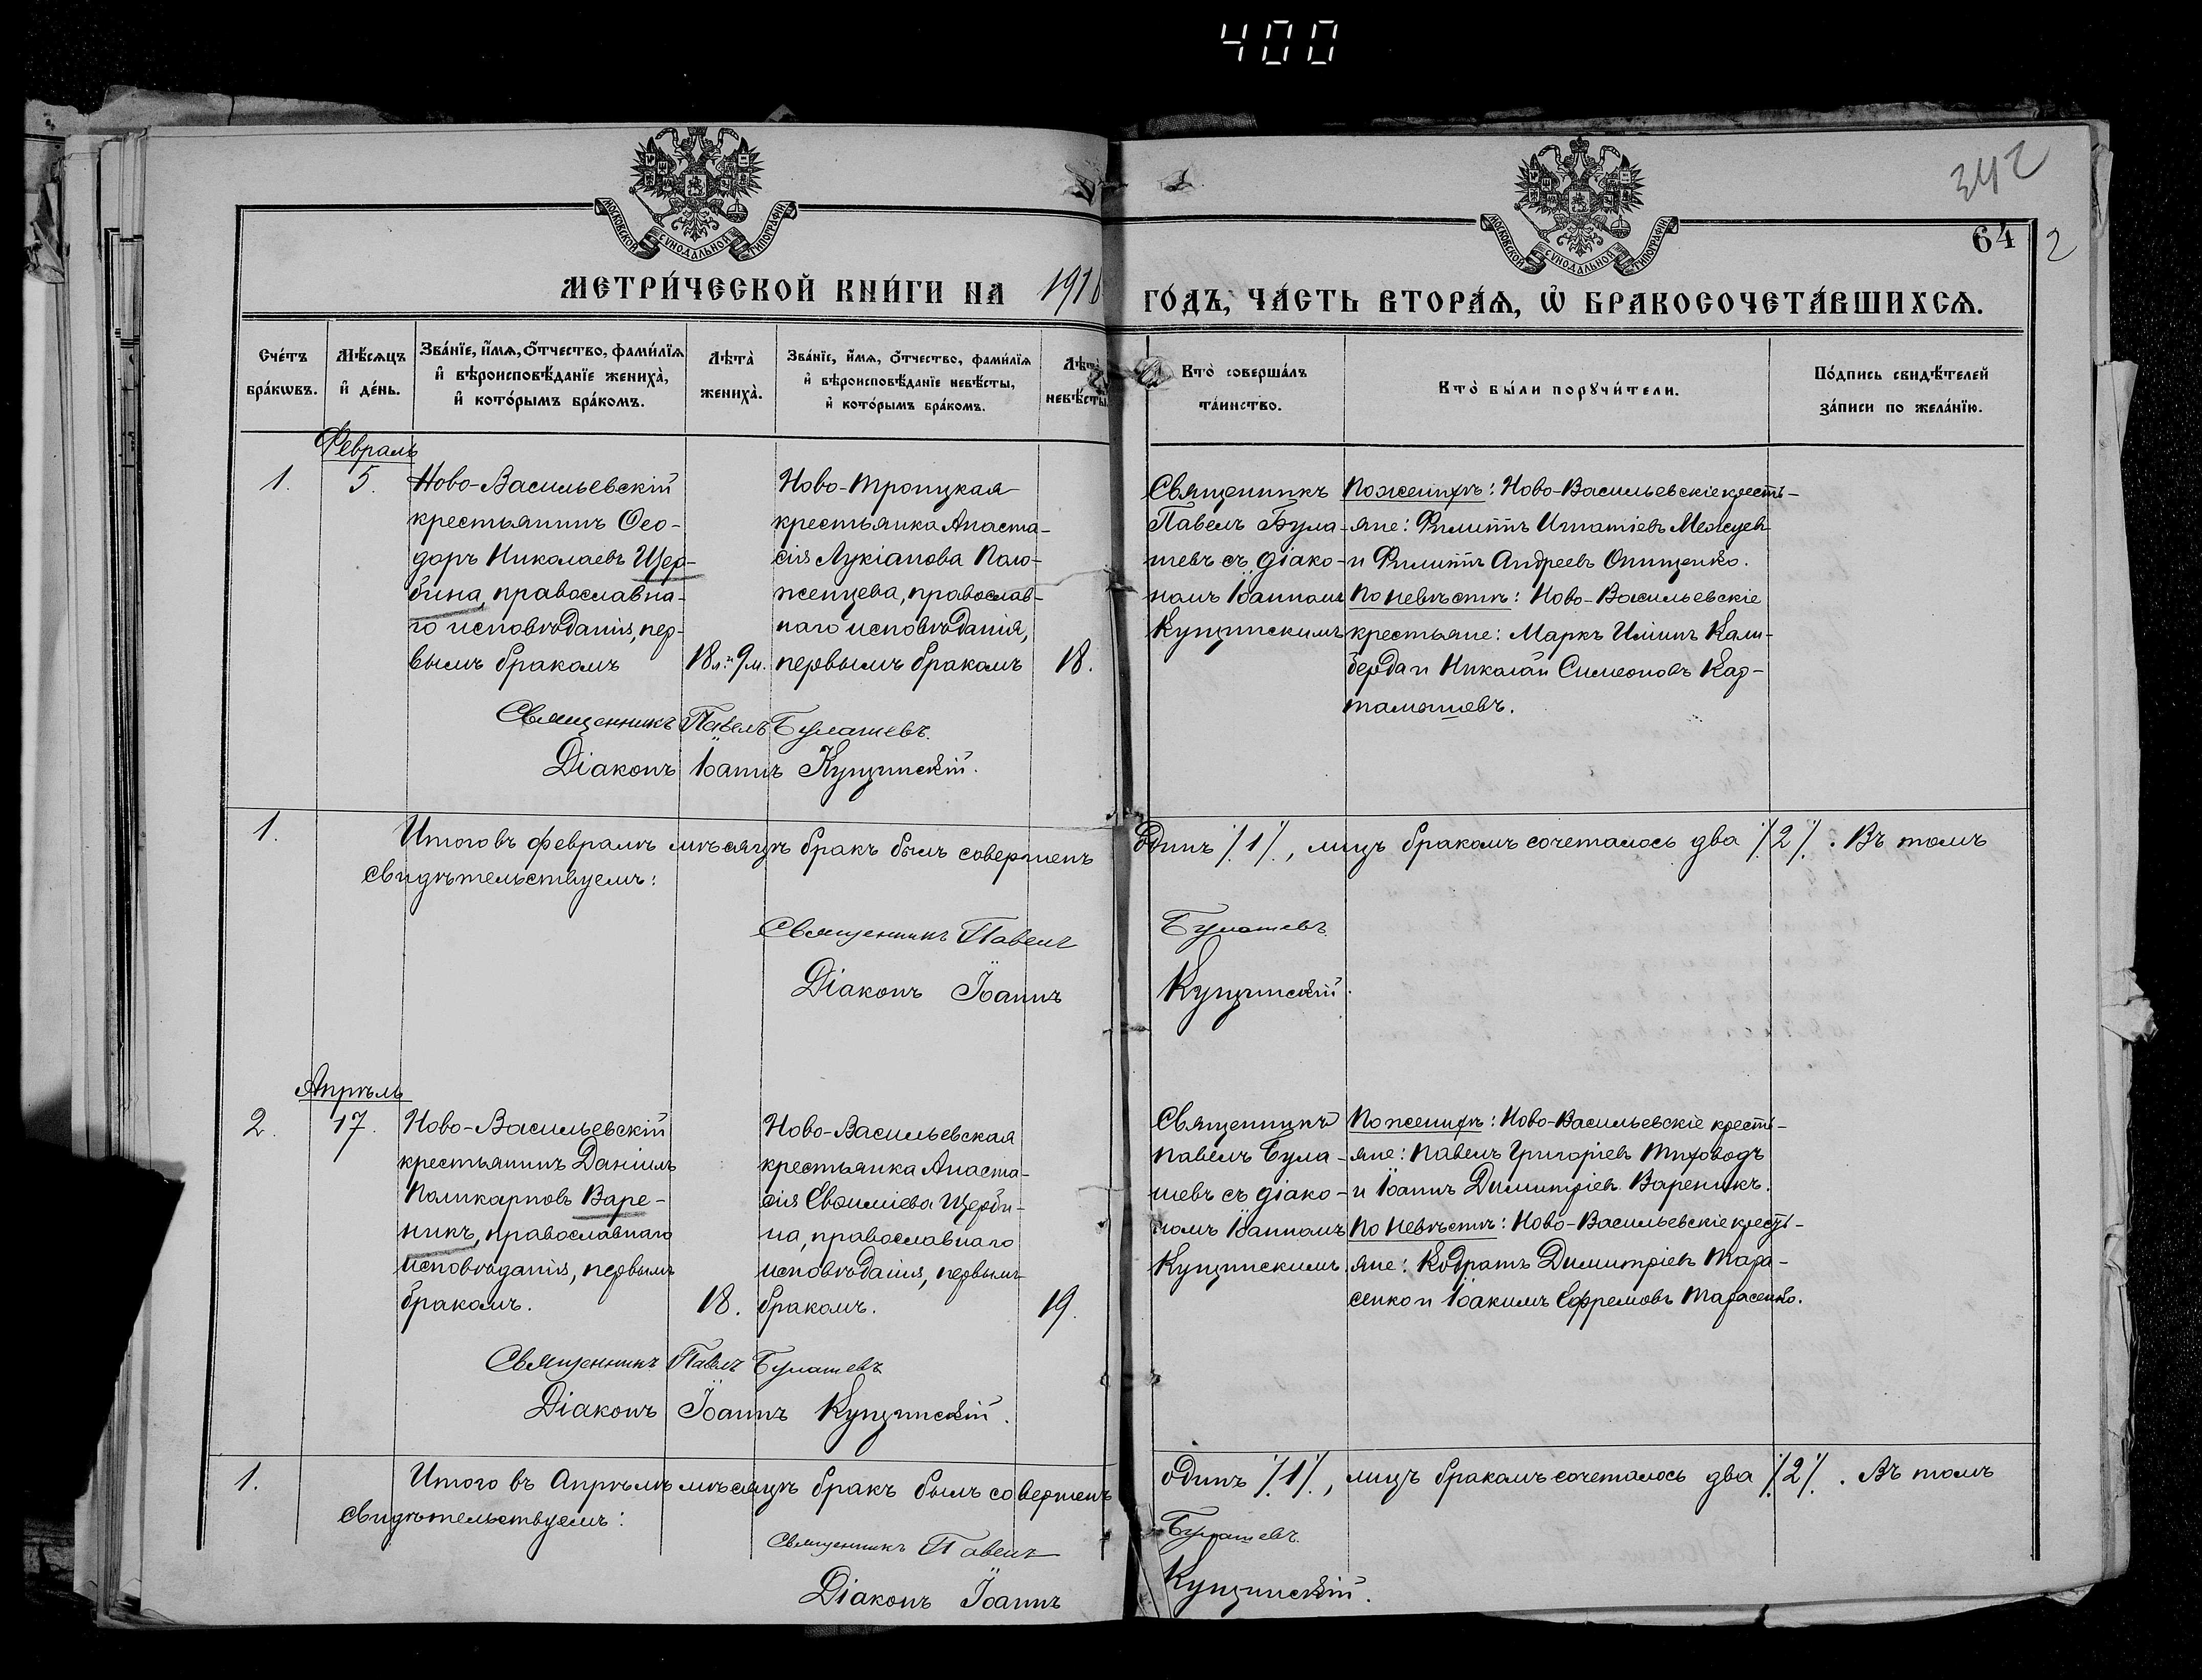 400
342
64
2
МОСКОВСКОЙ СѴНОДАЛЬНОЙ ТИПОГРАФІИ
МОСКОВСКОЙ СѴНОДАЛЬНОЙ ТИПОГРАФІИ
МЕТРИ́ЧЕСКОЙ КНИ́ГИ НА ГО́ДЪ, ЧА́СТЬ ВТОРА́Я, Ѽ БРАКОСОЧЕТА́ВШИХСЯ.
Сче́тъ бра́кѡвъ.
Мѣ́сяцъ и҆ де́нь.
Зва́нїе, и҆́мя, ѻ҆́тчество, фами́лїя и҆ вѣроисповѣ́данїе жениха̀, и҆ кото́рымъ бра́комъ.
Лѣта̀ жениха̀.
Зва́нїе, и҆́мя, ѻ҆́тчество, фами́лїя и҆ вѣроисповѣ́данїе невѣ́сты, и҆ кото́рымъ бра́комъ.
Лѣта̀ невѣ́сты.
Кто̀ соверша́лъ та́инство.
Кто̀ бы́ли порꙋчи́тели.
По́дпись свидѣ́телей за́писи по жела́нїю.
Февраль
1.
5.
Ново-Васильевскій
крестьянинъ Ѳео-
доръ Николаевъ Щер-
бина, православна-
го исповѣданія, пер-
вымъ бракомъ
18 л. и 9 м.
Ново-Троицкая
крестьянка Анаста-
сія Лукіанова Поло-
женцева, православ-
наго исповѣданія,
первымъ бракомъ
18.
Священникъ
Павелъ Була-
шевъ съ діако-
номъ Іоанномъ
Кущинскимъ
По женихѣ: Ново-Васильевскіе кресть-
яне: Филиппъ Игнатіевъ
и Филиппъ Андреевъ Онищенко.
По невѣстѣ: Ново-Васильевскіе
крестьяне: Маркъ Иліинъ Кали-
берда и Николай Симеоновъ Кар-
тамышевъ.
Священникъ Павелъ Булашевъ.
Діаконъ Іоаннъ Кущинскій.
1.
Итого въ февралѣ мѣсяцѣ бракъ былъ совершенъ одинъ /1/, лицъ бракомъ сочеталось два /2/. Въ томъ
свидѣтельствуемъ:
Священникъ Павелъ Булашевъ
Діаконъ Іоаннъ Кущинскій.
Апрѣль
2.
17.
Ново-Васильевскій
крестьянинъ Даніилъ
Поликарповъ Варе-
никъ, православнаго
исповѣданія, первымъ
бракомъ.
18.
Ново-Васильевская
крестьянка Анаста-
сія Евѳиміева Щерби-
на, православнаго
исповѣданія, первымъ
бракомъ.
19.
Священникъ
Павелъ Була-
шевъ съ діако-
номъ Іоанномъ
Кущинскимъ.
По женихѣ: Ново-Васильевскіе кресть-
яне: Павелъ Григоріевъ Тиховодъ
и Іоаннъ Димитріевъ Вареникъ.
По невѣстѣ: Ново-Васильевскіе кресть-
яне: Кодратъ Димитріевъ Тара-
сенко и Іоакимъ Ефремовъ Тарасенко.
Священникъ Павелъ Булашевъ
Діаконъ Іоаннъ Кущинскій.
1.
Итого въ Апрѣлѣ мѣсяцѣ бракъ былъ совершенъ одинъ /1/, лицъ бракомъ сочеталось два /2/. Въ томъ
свидѣтельствуемъ:
Священникъ Павелъ Булашевъ.
Діаконъ Іоаннъ Кущинскій.